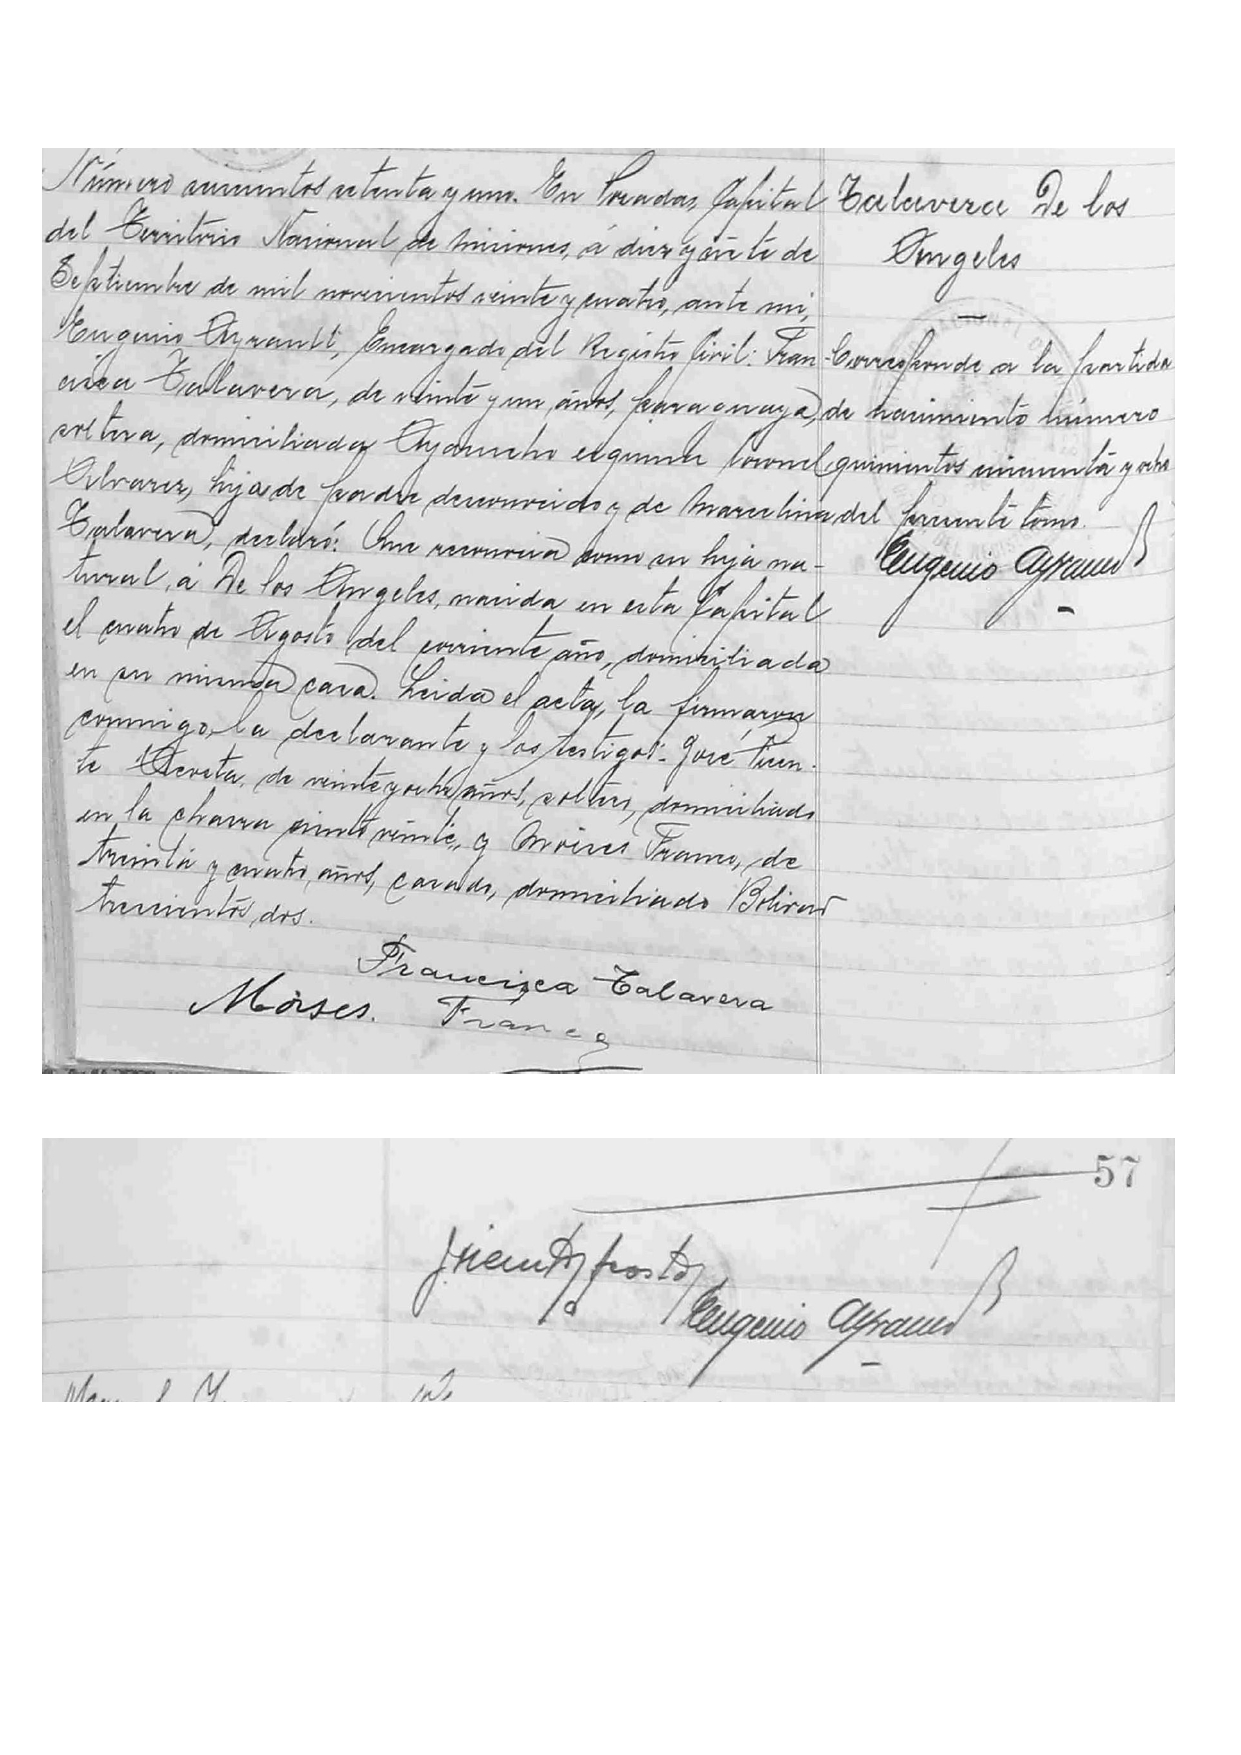 Número seiscientos setenta y uno. En Posadas, Capital
del Territorio Nacional de Misiones, á diez y siete de
Septiembre de mil novecientos veinte y cuatro, ante mi,
Eugenio Ayrault, Encargado del Registro Civil: Fran-
cisca Talavera, de veinte y un años, paraguaya,
soltera, domiciliada Ayacucho esquina Coronel
Alvarez, hija de padre desconocido y de Marcelina
Talavera, declaró: Que reconocía como su hija na-
tural, á De los Angeles, nacida en esta Capital
el cuatro de Agosto del corriente año, domiciliada
en su misma casa. Leida el acta, la firmaron
conmigo, la declarante y los testigos: José Vicen-
te de veinte y ocho años, soltero, domiciliado
en la chacra ciento veinte, y Moises Franco, de
treinta y cuatro años, casado, domiciliado Bolivar
trescientos dos.
Francisca Talavera
Moises. Franco
Talavera De los
Angeles
Corresponde a la partida
de nacimiento número
quinientos cincuenta y ocho
del presente tomo.
Eugenio Ayrault
57
Eugenio Ayrault